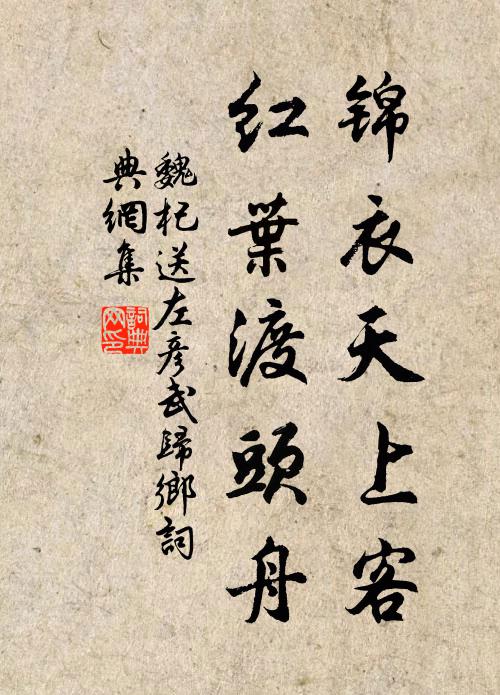 锦衣天上客
红葉渡頭舟
魏杞送左彦武歸鄉詞
典網集
詞典
网印